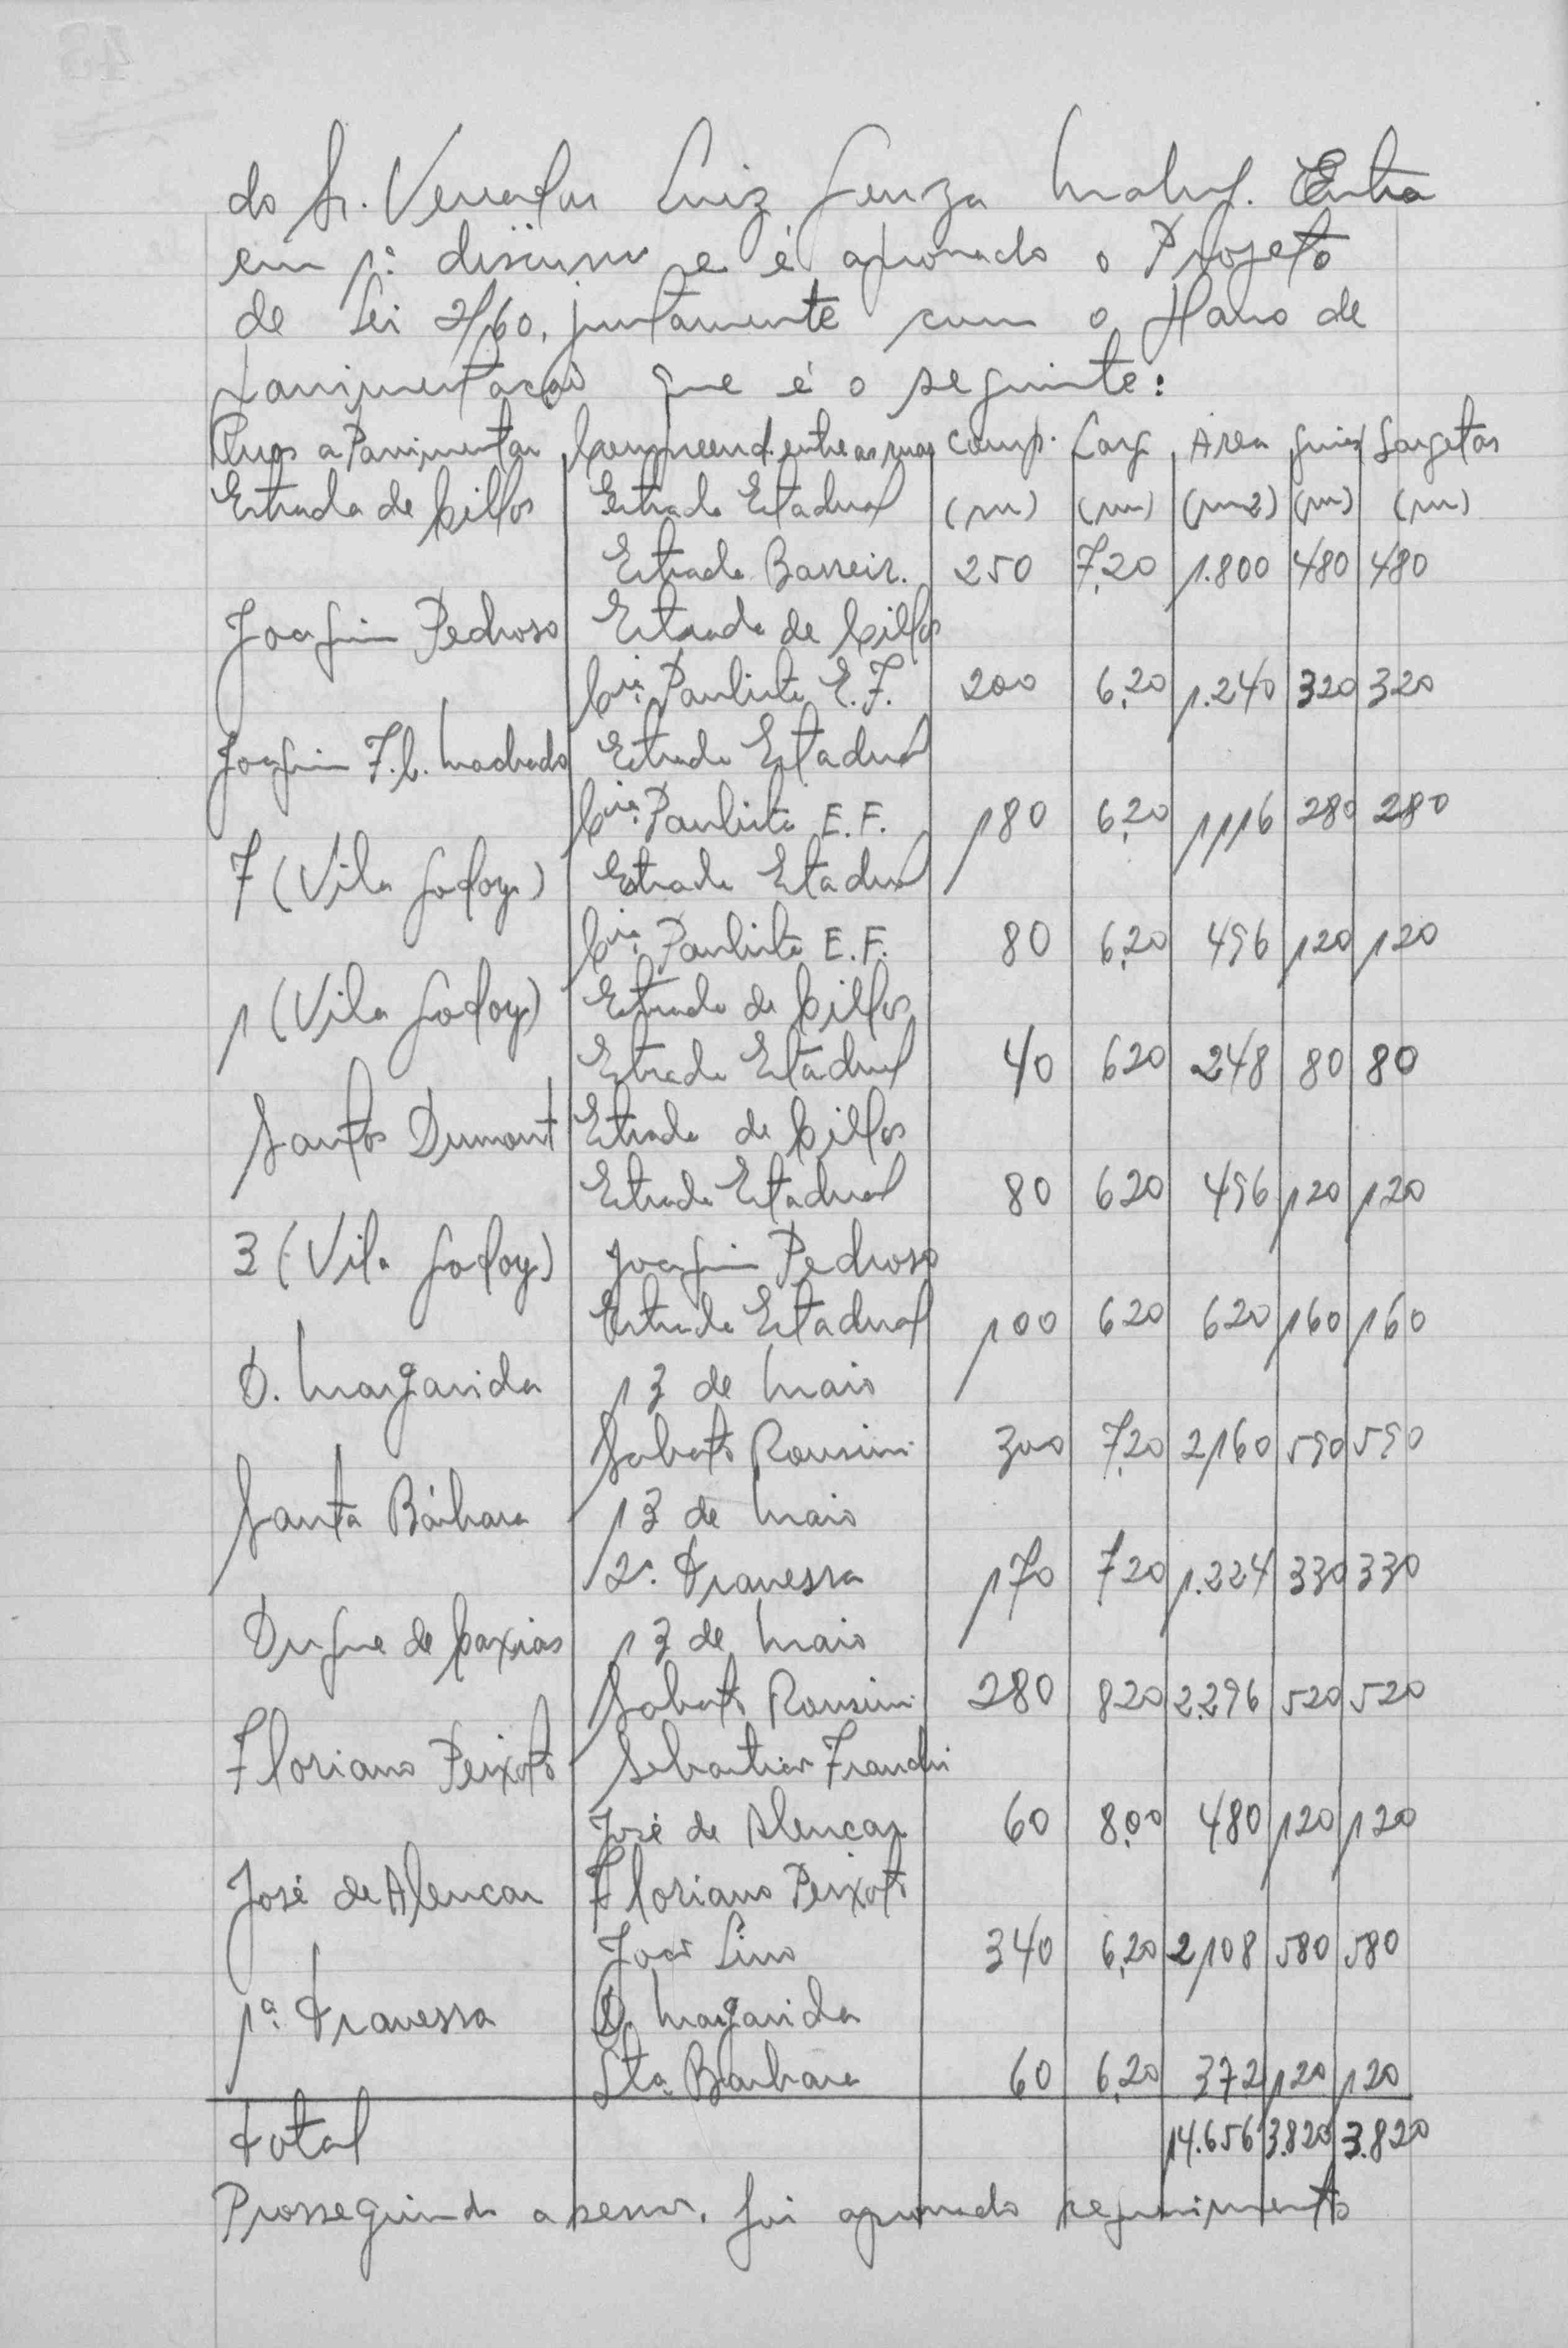 do Sr. Vereador Luiz Gonzaga Mahuf. Entra
em 1ª discussão e é aprovado o Projeto
de Lei 2/60, juntamente com o Plano de
Pavimentação que é o seguinte:
Ruas a Pavimentar Compreend. entre as ruas Comp. Larg. Area Guias Sargetas
Estrada de Cillos Estrada Estadual (m) (m) (m2) (m) (m)
Estrada Barreir. 250 7,20 1.800 480 480
Joaquim Pedroso Estrada de Cillos
Cia. Paulista E.F. 200 6,20 1.240 320 320
Joaquim F.C. Machado Estrada Estadual
Cia. Paulista E.F. 180 6,20 1116 280 280
7 (Vila Godoy) Estrada Estadual
Cia. Paulista E.F. 80 6,20 496 120 120
1 (Vila Godoy) Estrada de Cillos
Estrada Estadual 40 620 248 80 80
Santos Dumont Estrada de Cillos
Estrada Estadual 80 620 496 120 120
3 (Vila Godoy) Joaquim Pedroso
Estrada Estadual 100 620 620 160 160
D. Margarida 13 de Maio
Sabato Ronsini 300 7,20 2160 590 590
Santa Bárbara 13 de Maio
2ª. Travessa 170 720 1.224 330 330
Duque de Caxias 13 de Maio
Sabato Ronsini 280 820 2.296 520 520
Floriano Peixoto Sebastião Franchi
José de Alencar 60 8,00 480 120 120
José de Alencar Floriano Peixoto
João Lino 340 6,20 2108 580 580
1ª. Travessa D. Margarida
Sta. Barbara 60 6,20 372 120 120
Total 14.656 3.820 3.820
Prosseguindo a sessão, foi aprovado requerimento